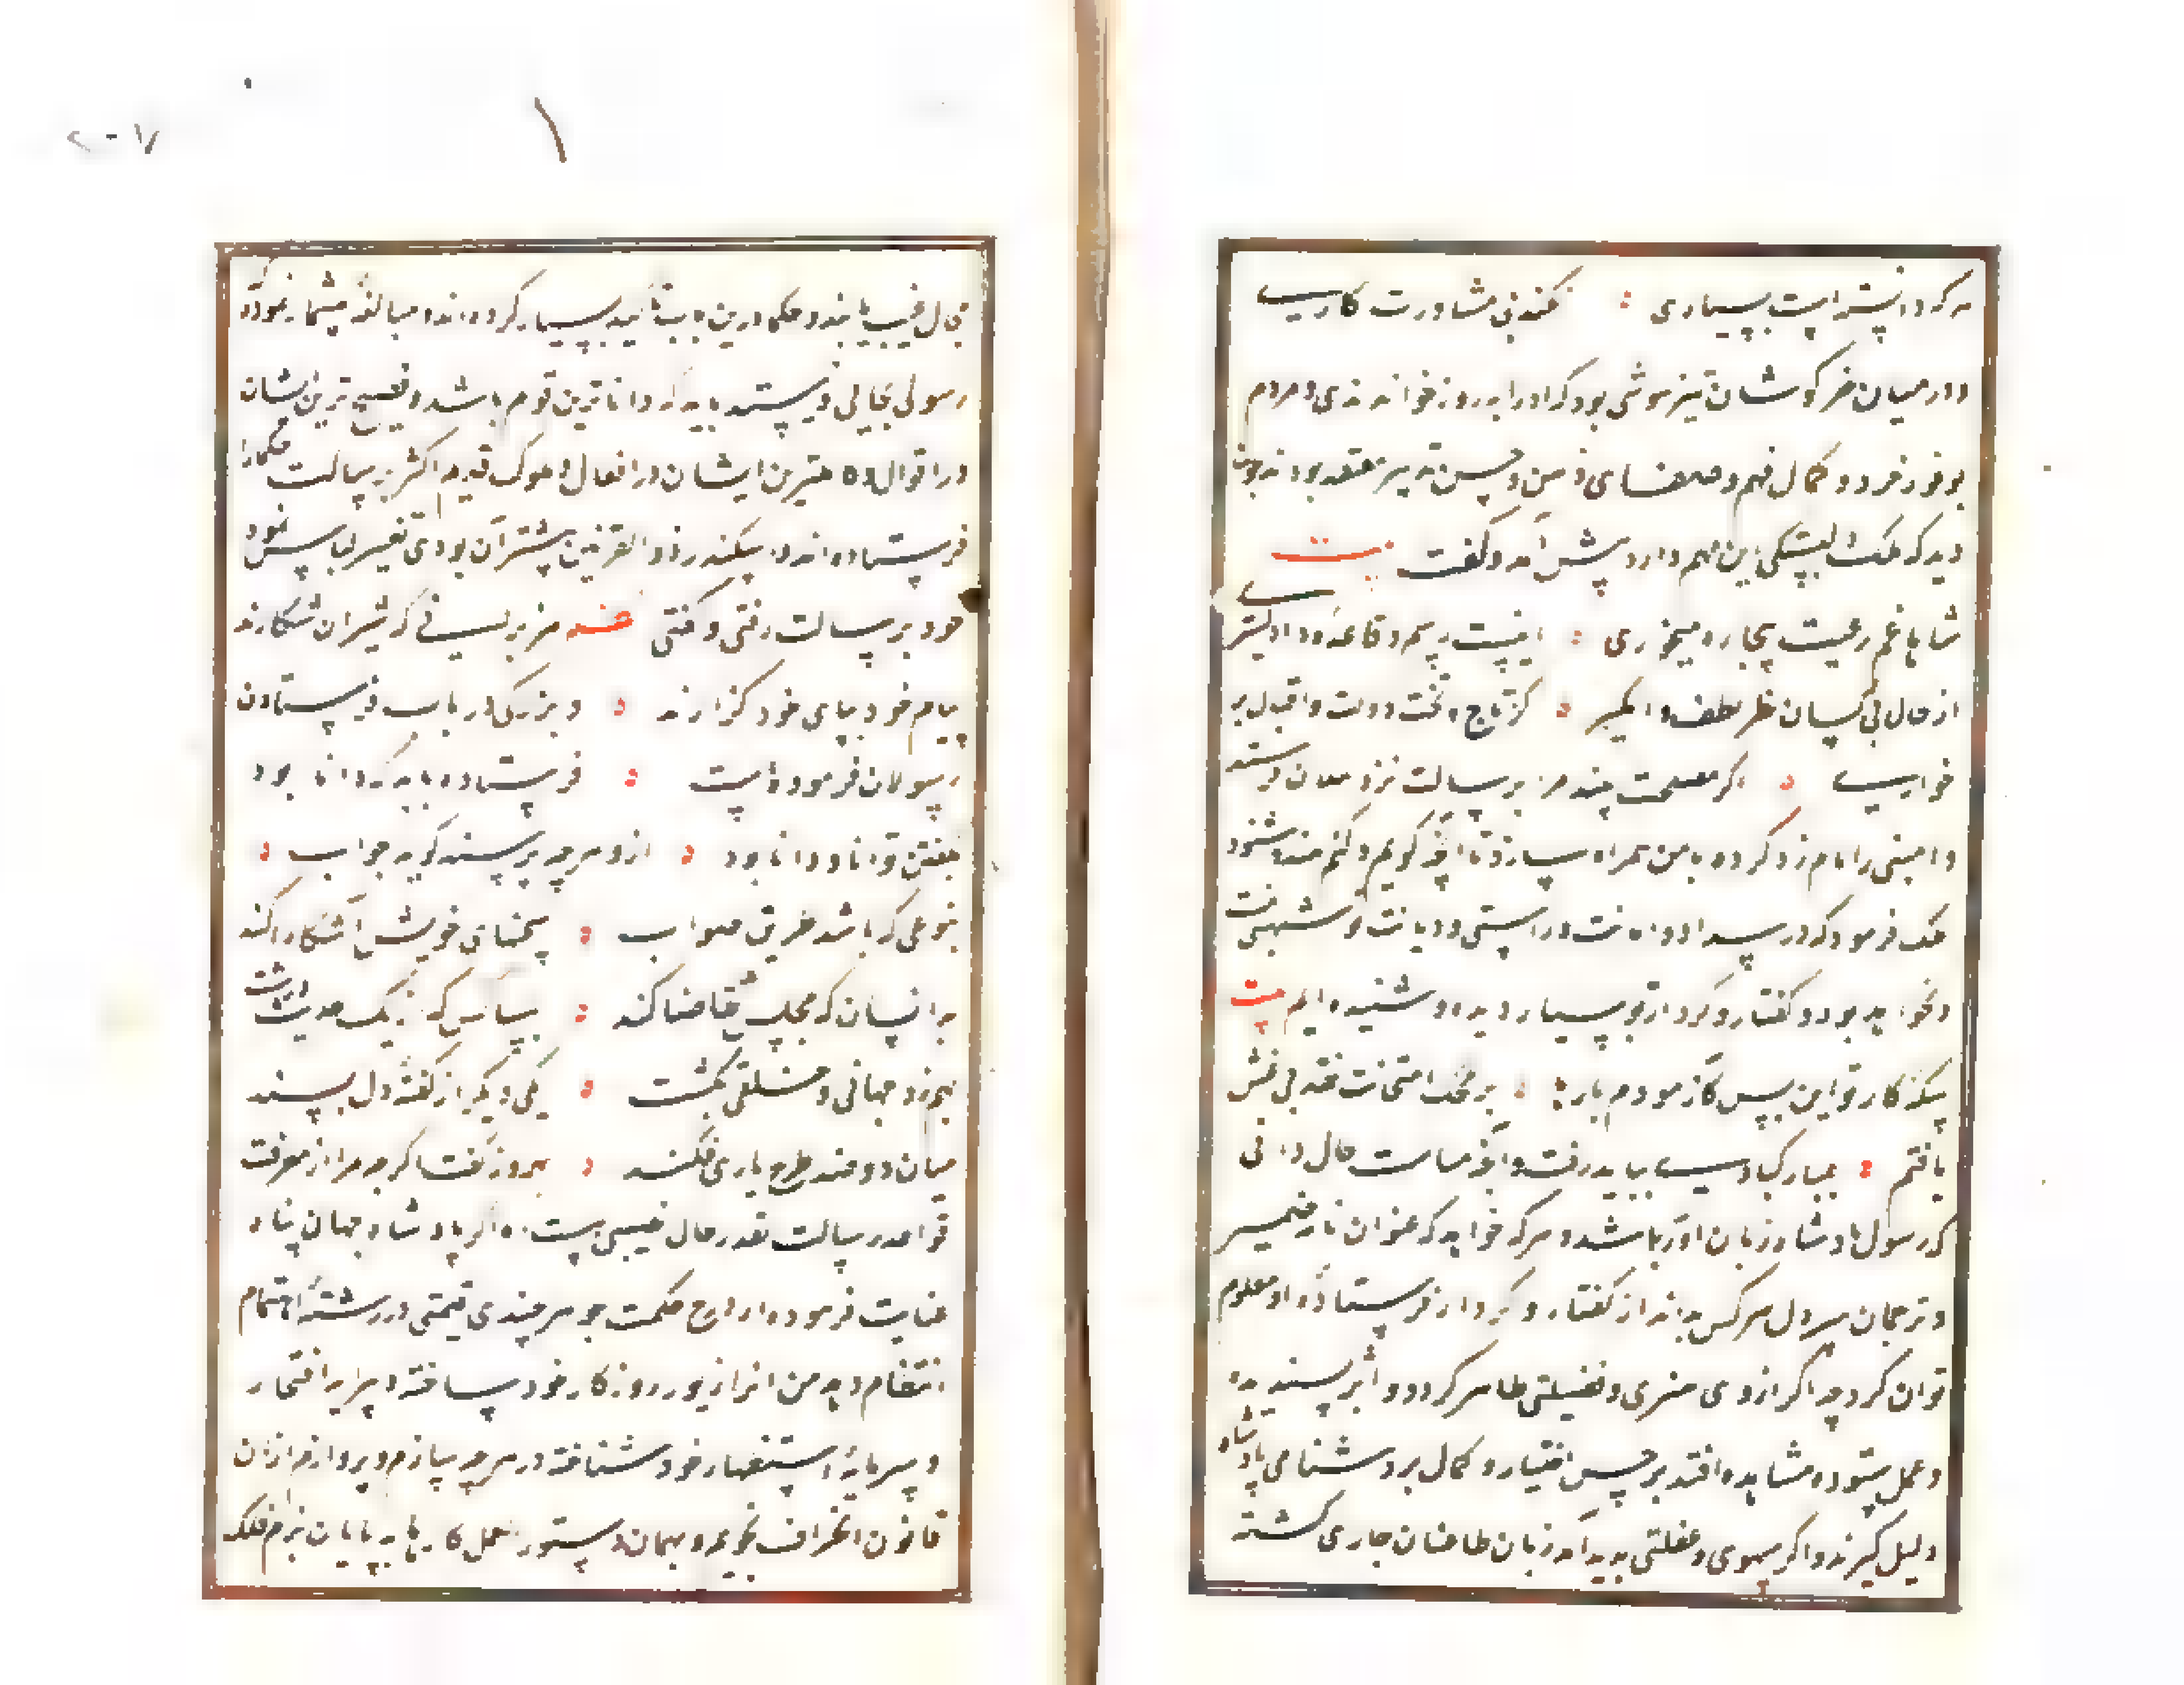 هر که دانسته است بسیاری : نکند بی مشاورت کاری
و در میان خرگوشان تیز هوشی بود که او را بهروز خواندندی و مردم
بوفور خرد و کمال فهم و صفای ذهن و حسن تدبیر معتقد بودند چون
دید که ملک دلبستگی این مهم دارد پیش آمد و گفت بیت
شاها غم رعیت بیچاره میخوری : اینست رسم و قاعده داد گستری
از حال بی کسان نظر لطف وا مگیر : کز تاج و تخت و دولت و اقبال بر
خوری : اگر مصلحت بیند مرا برسالت نزد پیلان فرستد
و امینی را نامزد کرده با من همراه سازد تا آنچه گویم و کنم بیند و شنود
ملک فرمود که در سداد و امانت و راستی و دیانت تو شبهتی نیست
و نخواهد بود و گفتار و کردار تو بسیار دیده و شنیده ایم بیت
سکه کار تو این بس که آزمودم بارها : بر محک امتحانت نقد بی غش
یافتم : بمبارکی باید رفت و آنچه مناسب حال دانی
که رسول پادشاه زبان او باشد و هر که خواهد که عنوان نامه ضمیر
و ترجمان سر دل هر کس بداند از گفتار و کردار فرستاده او معلوم
توان کرد چه اگر از وی هنری و فضیلتی ظاهر گردد و اثر پسندیده
و عمل ستوده مشاهده افتد بر حسن اختیار و کمال مردشناسی پادشاه
دلیل گیرند و اگر سهوی و غفلتی پدید آمد زبان طاعنان جاری گشته
مجال غیبت یابند و حکما درین باب تأکید بسیار کرده اند و مبالغه بیشمار نموده
رسولی بجایی فرستد باید که داناترین قوم باشد و فصیح ترین ایشان
در اقوال و بهترین ایشان در افعال و ملوک قدیم اکثر برسالت حکما را
فرستاده اند و اسکندر ذوالقرنین بیشتر آن بودی تغییر لباس نمود
خود برسالت رفتی و گفتی
پیام خود بپای خود گزارند : و بزرگی در باب فرستادن
رسولان فرموده است : فرستاده باید که دانا بود
بگفتن توانا و دانا بود : ازو هر چه پرسند گوید جواب :
بنوعی که باشد طریق صواب : سخنهای خویش آشکارا کند
بدانسان که مجلس تقاضا کند : بسا کس که از یک حدیث درشت
بهم زد جهانی و خلقی بکشت : یکی دیگر از گفته دل پسند
میان دو ضد طرح یاری فکند : بهروز گفت اگر چه مرا از معرفت
قواعد رسالت بقدر حال نصیبی هست اما اگر پادشاه جهان پناه
عنایت فرموده از درج حکمت جوهر چندی قیمتی در رشته اهتمام
انتظام دهد من آنرا زیور روزگار خود ساخته و پیرایه افتخار
و سرمایه استظهار خود شناخته در هر چه سازم و پردازم از آن
قانون انحراف نجویم و بهمان دستور العمل کارها بپایان برم ملک